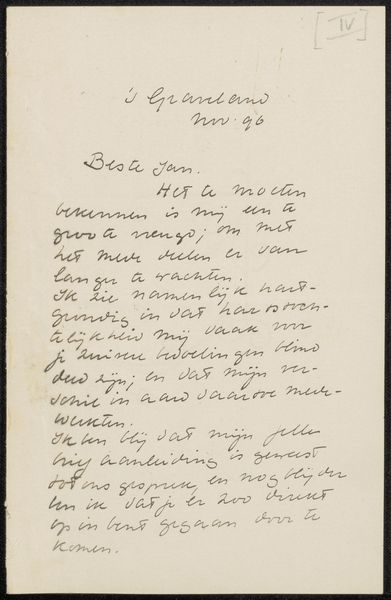 [IV]
's Graveland
Nov. 96
Beste Jan.
Het te moeten
bekennen is mij een te
groote vreugd; om met
het mede deelen er van
langer te wachten.
Ik zie namenlijk hart-
grondig in dat hartstoch-
telijkheid mij vaak voor
je zuivere bedoelingen blind
deed zijn; en dat mijn ver-
schil in aard daartoe mede-
werkten.
Ik ben blij dat mijn felle
brief aanleiding is geweest
tot ons gesprek, en nog blijder
ben ik dat je er zoo direkt
op in bent gegaan door te
komen.